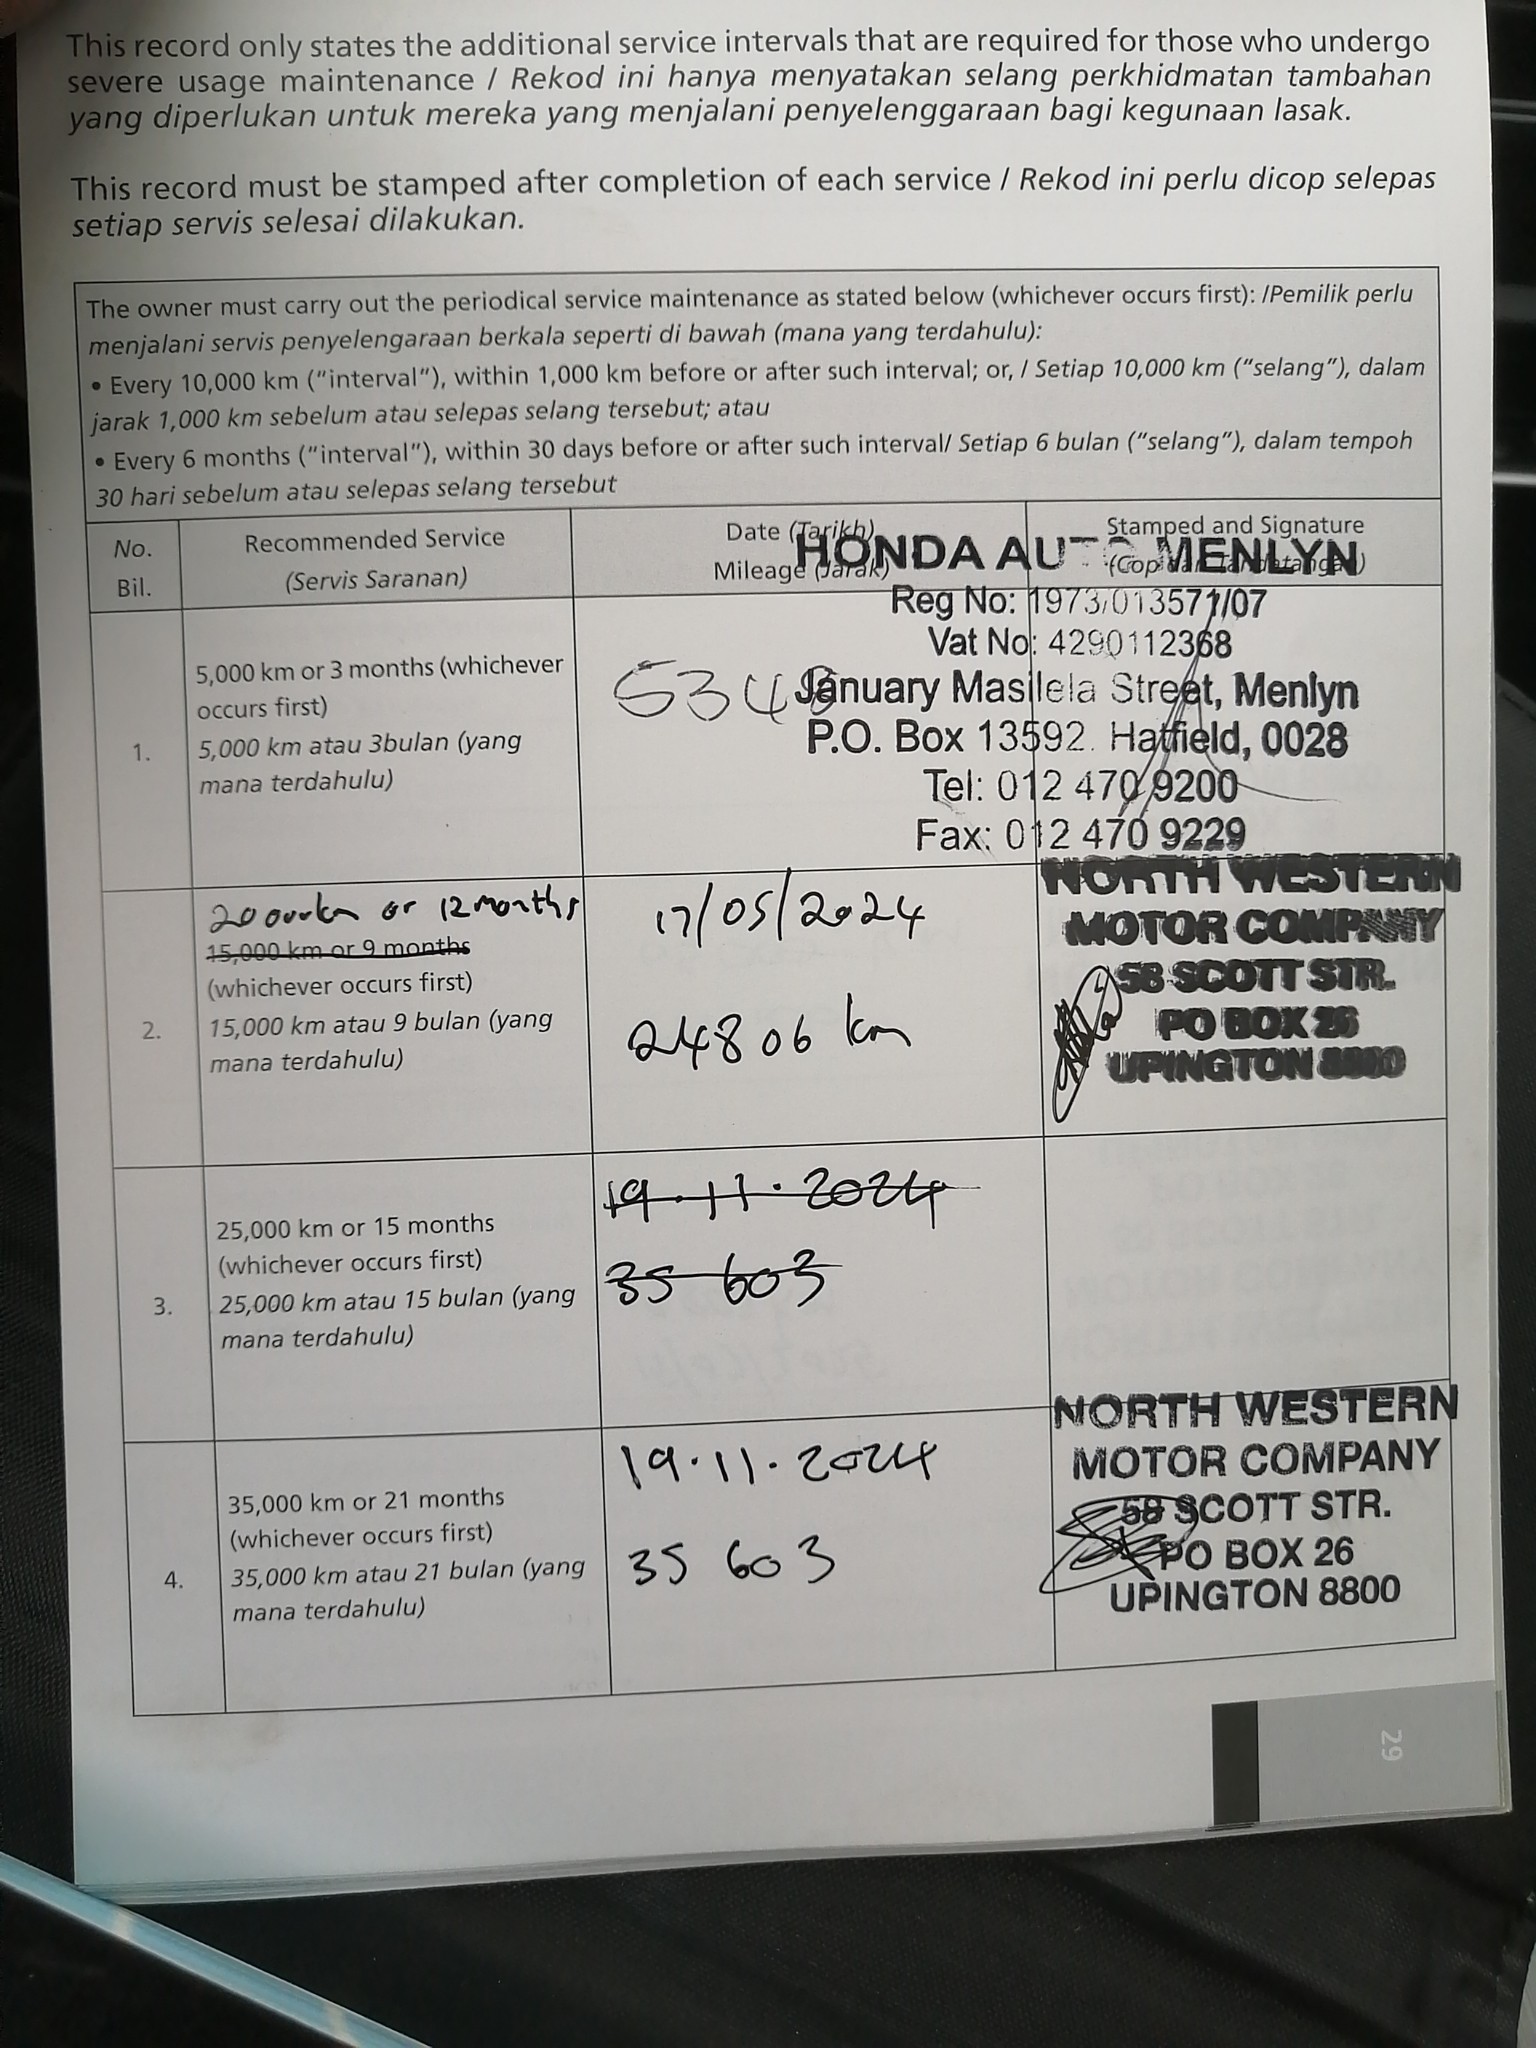 This record only states the additional service intervals that are required for those who undergo
severe usage maintenance / Rekod ini hanya menyatakan selang perkhidmatan tambahan
yang diperlukan untuk mereka yang menjalani penyelenggaraan bagi kegunaan lasak.
This record must be stamped after completion of each service / Rekod ini perlu dicop selepas
setiap servis selesai dilakukan.
The owner must carry out the periodical service maintenance as stated below (whichever occurs first): /Pemilik perlu
menjalani servis penyelengaraan berkala seperti di bawah (mana yang terdahulu):
• Every 10,000 km ("interval"), within 1,000 km before or after such interval; or, / Setiap 10,000 km ("selang"), dalam
jarak 1,000 km sebelum atau selepas selang tersebut; atau
• Every 6 months ("interval"), within 30 days before or after such interval/ Setiap 6 bulan ("selang"), dalam tempoh
30 hari sebelum atau selepas selang tersebut
No.
Bil.
Recommended Service
(Servis Saranan)
Date (Tarikh)
Mileage (Jarak)
Stamped and Signature
(Cop dan Tandatangan)
1.
5,000 km or 3 months (whichever
occurs first)
5,000 km atau 3bulan (yang
mana terdahulu)
5348
HONDA AUTO MENLYN
Reg No: 1973/013571/07
Vat No: 4290112368
January Masilela Street, Menlyn
P.O. Box 13592. Hatfield, 0028
Tel: 012 470 9200
Fax: 012 470 9229
2.
20 000km or 12 months
15,000 km or 9 months
(whichever occurs first)
15,000 km atau 9 bulan (yang
mana terdahulu)
17/05/2024
24806 km
NORTH WESTERN
MOTOR COMPANY
58 SCOTT STR.
PO BOX 26
UPINGTON 8800
3.
25,000 km or 15 months
(whichever occurs first)
25,000 km atau 15 bulan (yang
mana terdahulu)
19.11.2024
35 603
4.
35,000 km or 21 months
(whichever occurs first)
35,000 km atau 21 bulan (yang
mana terdahulu)
19.11.2024
35 603
NORTH WESTERN
MOTOR COMPANY
58 SCOTT STR.
PO BOX 26
UPINGTON 8800
29